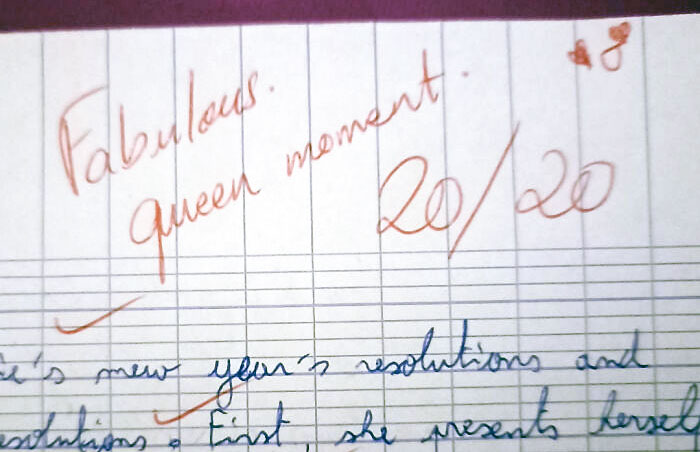 Fabulous.
queen moment.
20/20
's new year's resolutions and
esolutions. First, she presents herself